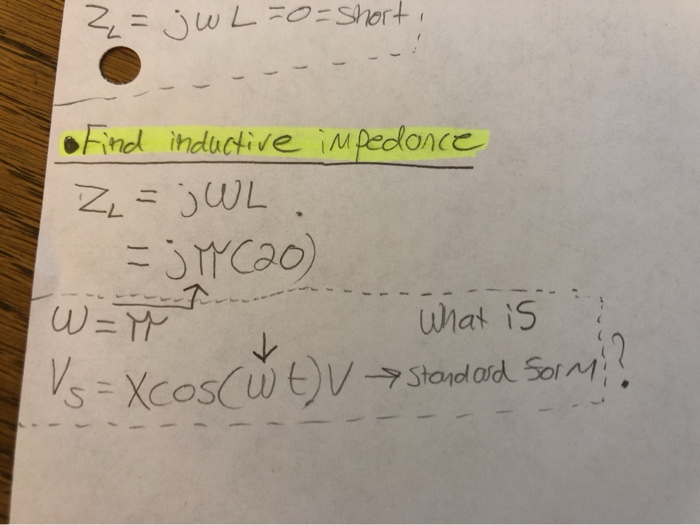 Z_L = jωL = 0 = short
• Find inductive impedance
Z_L = jωL
= jπ(20)
ω = π
What is
V_S = Xcos(ωt)V → Standard form ?